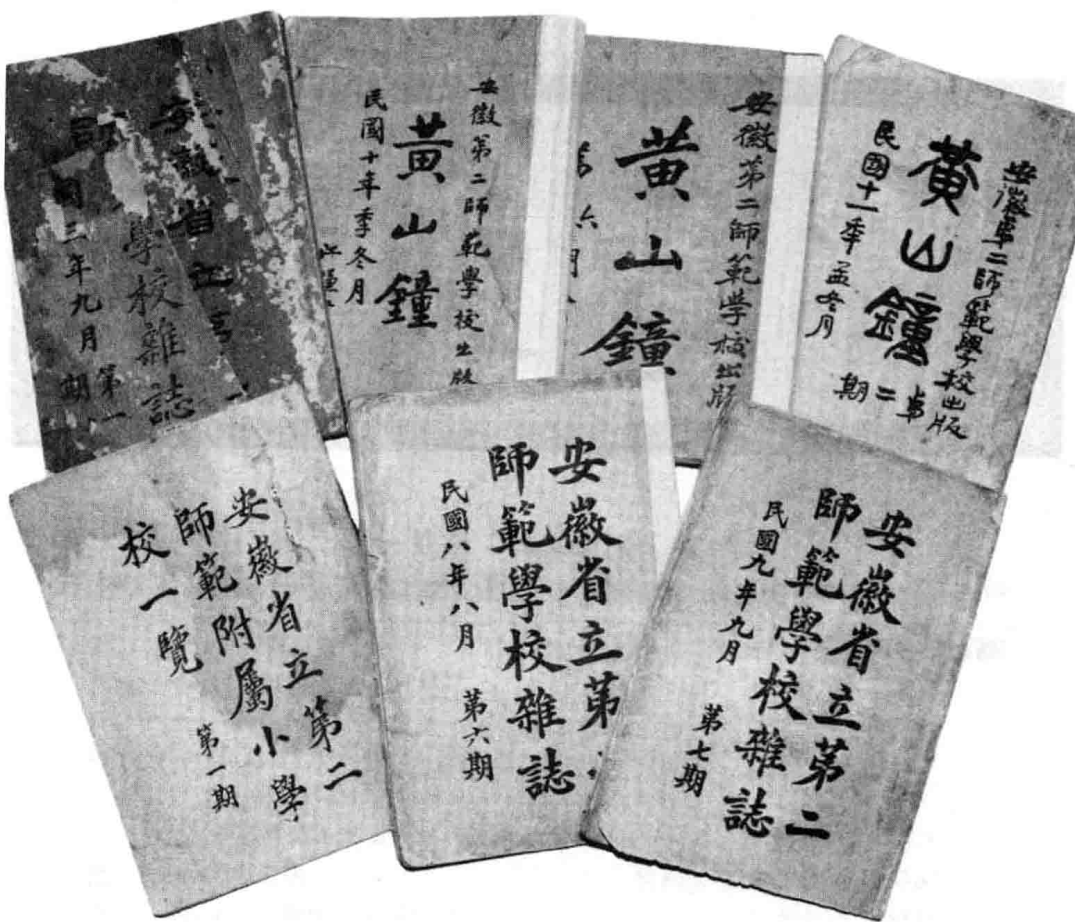 學校雜誌
三年九月
第一期
安徽第二師範學校出版
黃山鐘
民國十年季冬月
安徽第二師範學校出版
黃山鐘
六期
安徽第二師範學校出版
黃山鐘
第二期
民國十一年孟冬月
安徽省立第二
師範附屬小學
校一覽
第一期
安徽省立第
師範學校雜誌
民國八年八月
第六期
安徽省立第二
師範學校雜誌
民國九年九月
第七期